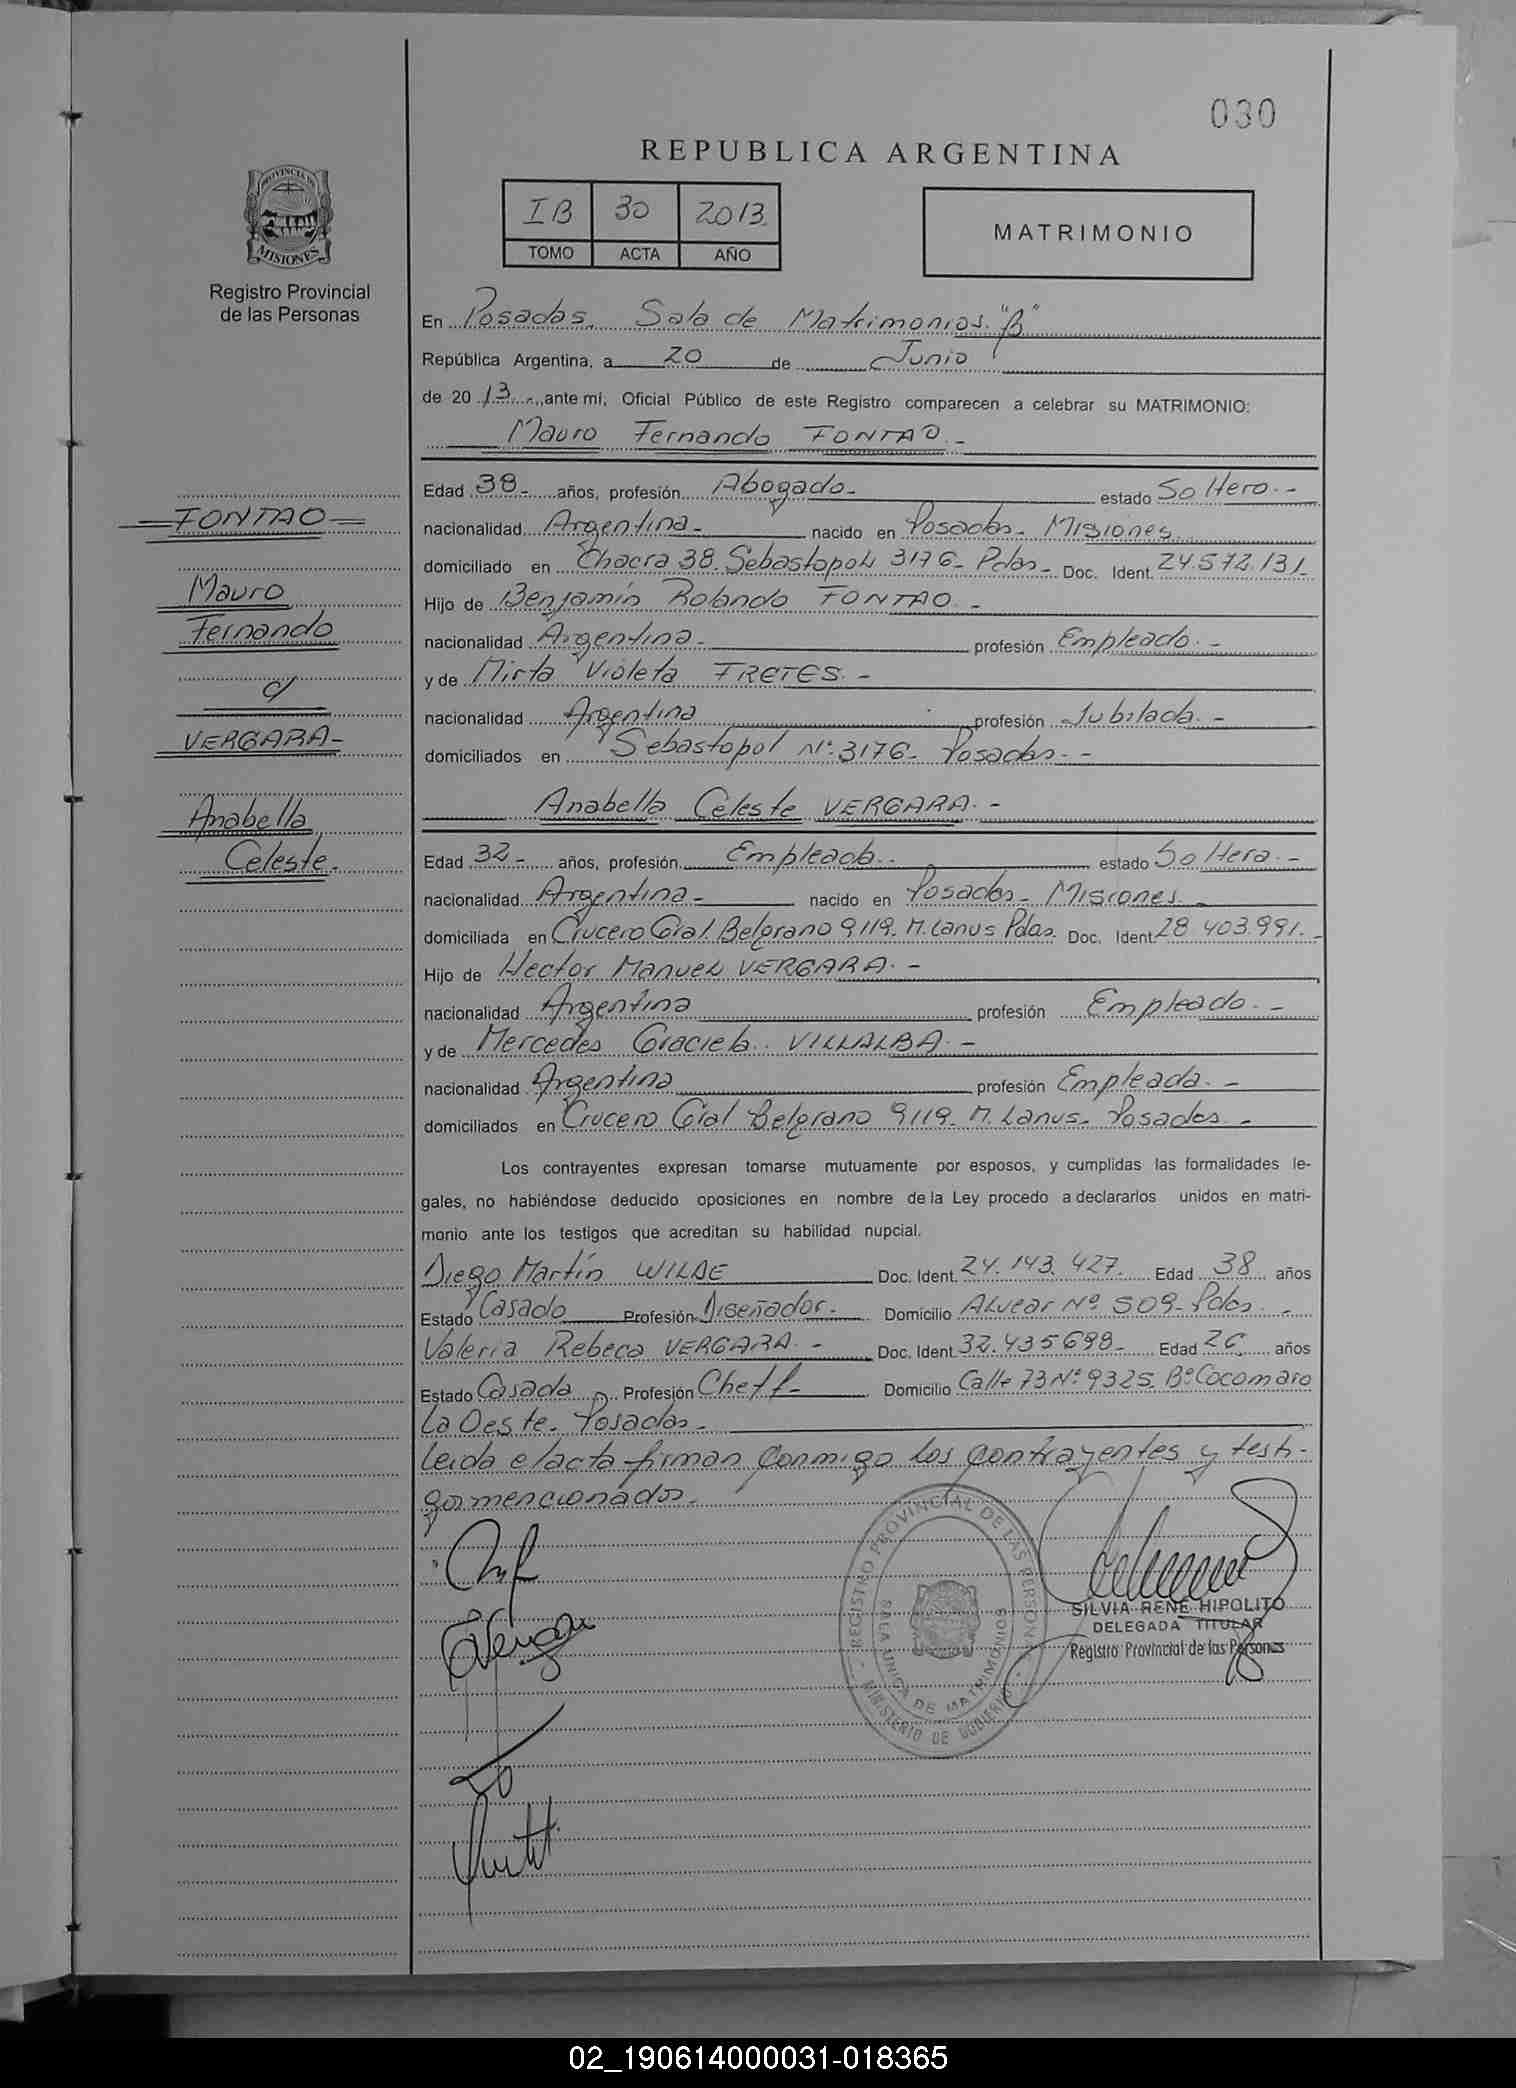 030
REPUBLICA ARGENTINA
PROVINCIA DE
MISIONES
Registro Provincial
de las Personas
IB 30 2013
TOMO ACTA AÑO
MATRIMONIO
En Posadas. Sala de Matrimonios "B"
República Argentina, a 20 de Junio
de 2013 ante mí, Oficial Público de este Registro comparecen a celebrar su MATRIMONIO:
Mauro Fernando FONTAO.-
Edad 38- años, profesión Abogado- estado Soltero.-
FONTAO
nacionalidad Argentina- nacido en Posadas- Misiones.
domiciliado en Chacra 38. Sebastopol 3176- Pdas- Doc. Ident. 24.572.131-
Mauro
Hijo de Benjamín Rolando FONTAO.-
Fernando
nacionalidad Argentina.- profesión Empleado.-
y de Mirta Violeta FRETES.-
c/
nacionalidad Argentina profesión Jubilada.-
VERGARA-
domiciliados en Sebastopol Nº 3176- Posadas.-
Anabella Celeste VERGARA.-
Anabella
Celeste.
Edad 32- años, profesión Empleada.- estado Soltera.-
nacionalidad Argentina- nacido en Posadas- Misiones.-
domiciliada en Crucero Gral. Belgrano 9119. M. Lanus Pdas. Doc. Ident. 28.403.991.-
Hijo de Hector Manuel VERGARA.-
nacionalidad Argentina profesión Empleado.-
y de Mercedes Graciela VILLALBA.-
nacionalidad Argentina profesión Empleada.-
domiciliados en Crucero Gral Belgrano 9119- M. Lanus- Posadas.-
Los contrayentes expresan tomarse mutuamente por esposos, y cumplidas las formalidades le-
gales, no habiéndose deducido oposiciones en nombre de la Ley procedo a declararlos unidos en matri-
monio ante los testigos que acreditan su habilidad nupcial.
Diego Martín WILDE Doc. Ident. 24.143.427. Edad 38 años
Estado Casado Profesión Diseñador.- Domicilio Alvear Nº 509- Pdas.-
Valeria Rebeca VERGARA.- Doc. Ident. 32.435698- Edad 26. años
Estado Casada Profesión Cheff- Domicilio Calle 73 Nº 9325. Bº Cocomaro
La Oeste. Posadas.-
Leida el acta firman conmigo los contrayentes y testi-
gos mencionados.-
REGISTRO PROVINCIAL DE LAS PERSONAS
SALA UNICA DE MATRIMONIOS
MINISTERIO DE GOBIERNO
SILVIA RENÉ HIPOLITO
DELEGADA TITULAR
Registro Provincial de las Personas
02_190614000031-018365